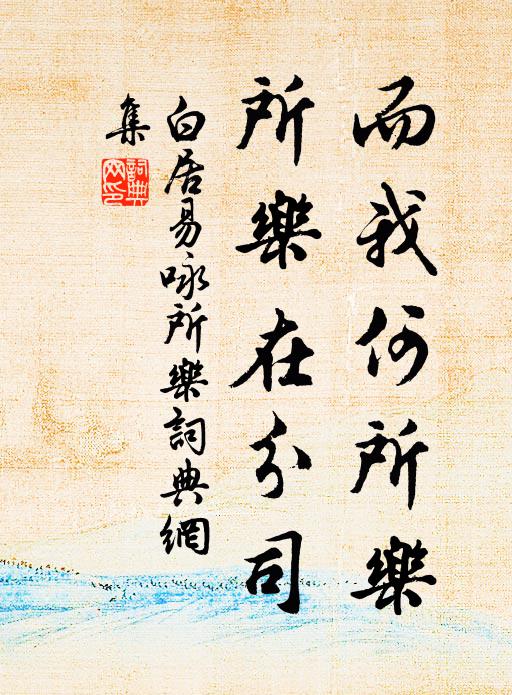 而我何所樂
所樂在分司
白居易咏所樂詞典網
集
詞典
网印